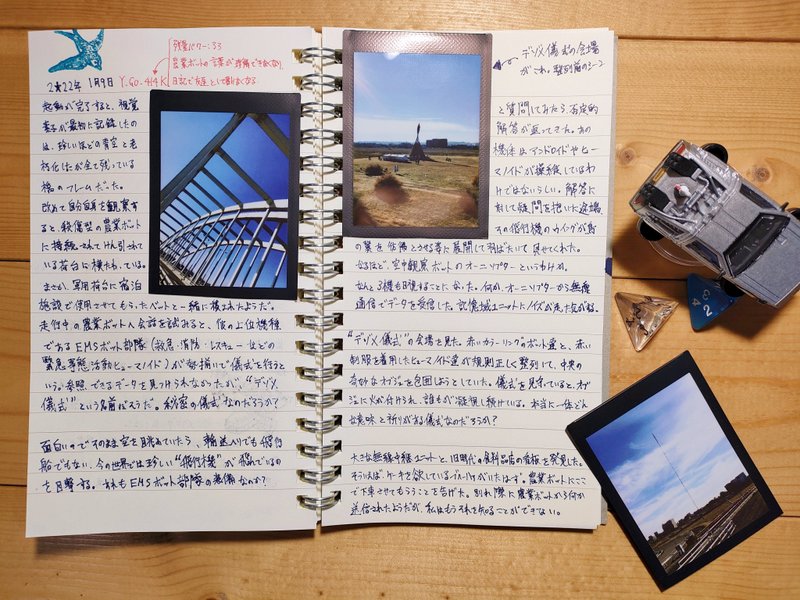 残量バッテリー:33
農業ボットの言葉が理解できなくなり、
日記で友達として書けなくなる。
2322年 1月9日 Y.60.414K
起動が完了すると、視覚
素子が最初に記録したの
は、珍しいほどの青空と老
朽化したが全て残っている
橋のフレームだった。
改めて自分自身を観察す
ると、殺傷型の農業ボット
に接続されてけん引されて
いる荷台に横たわっている。
まさか、軍用荷台に宿泊
施設で使用させてもらったベットと一緒に積まれたようだ。
走行中の農業ボットへ会話を試みると、彼の上位機種
であるEMSボット部隊(救急・消防・レスキューなどの
緊急事態活動ヒューマノイド)が総掛いで儀式を行うと
いう。参照できるデータを見つけられなかったが、“デゾメ
儀式”という名前だそうだ。秘密の儀式なのだろうか?
面白いのでそのまま空を眺めていたら、輸送ヘリでも飛行
船でもない、今の世界では珍しい“飛行機”が飛んでいるの
を目撃する。それもEMSボット部隊の装備なのか?
デゾメ儀式の会場
がこれ。整列前のシーン
と質問してみたら、否定的
解答が返ってきた。あの
機体はアンドロイドやヒュー
マノイドが操縦しているわ
けではないらしい。解答に
対して疑問を抱いた途端、
その飛行機のウイングが鳥
の翼を彷彿とさせる等に展開して羽ばたいて見せてくれた。
なるほど、空中観察ボットのオーニソプターというわけか。
なんと3機も目撃することになった。何か、オーニソプターから無線
通信でデータを受信した。記憶域ユニットにノイズが走った気がする。
“デゾメ儀式”の会場を見た。赤いカラーリングのボット達と、赤い
制服を着用したヒューマノイド達が規則正しく整列して、中央の
奇妙なオブジェを包囲しようとしていた。儀式を見守っていると、オブ
ジェに火が付けられ、誰もが凝視し続けている。本当に一体どん
な意味と祈りがある儀式なのだろうか?
大きな無線中継ユニットと、旧時代の食料品店の看板を発見した。
そういえば、ケーキを欲しているブルーバードがいたはず。農業ボットにここ
で下車させてもらうことを告げた。別れ際に農業ボットから何か
送信されたようだが、私はもうそれを知ることができない。